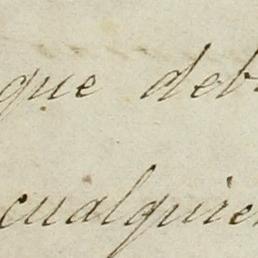 que deb
cualquier